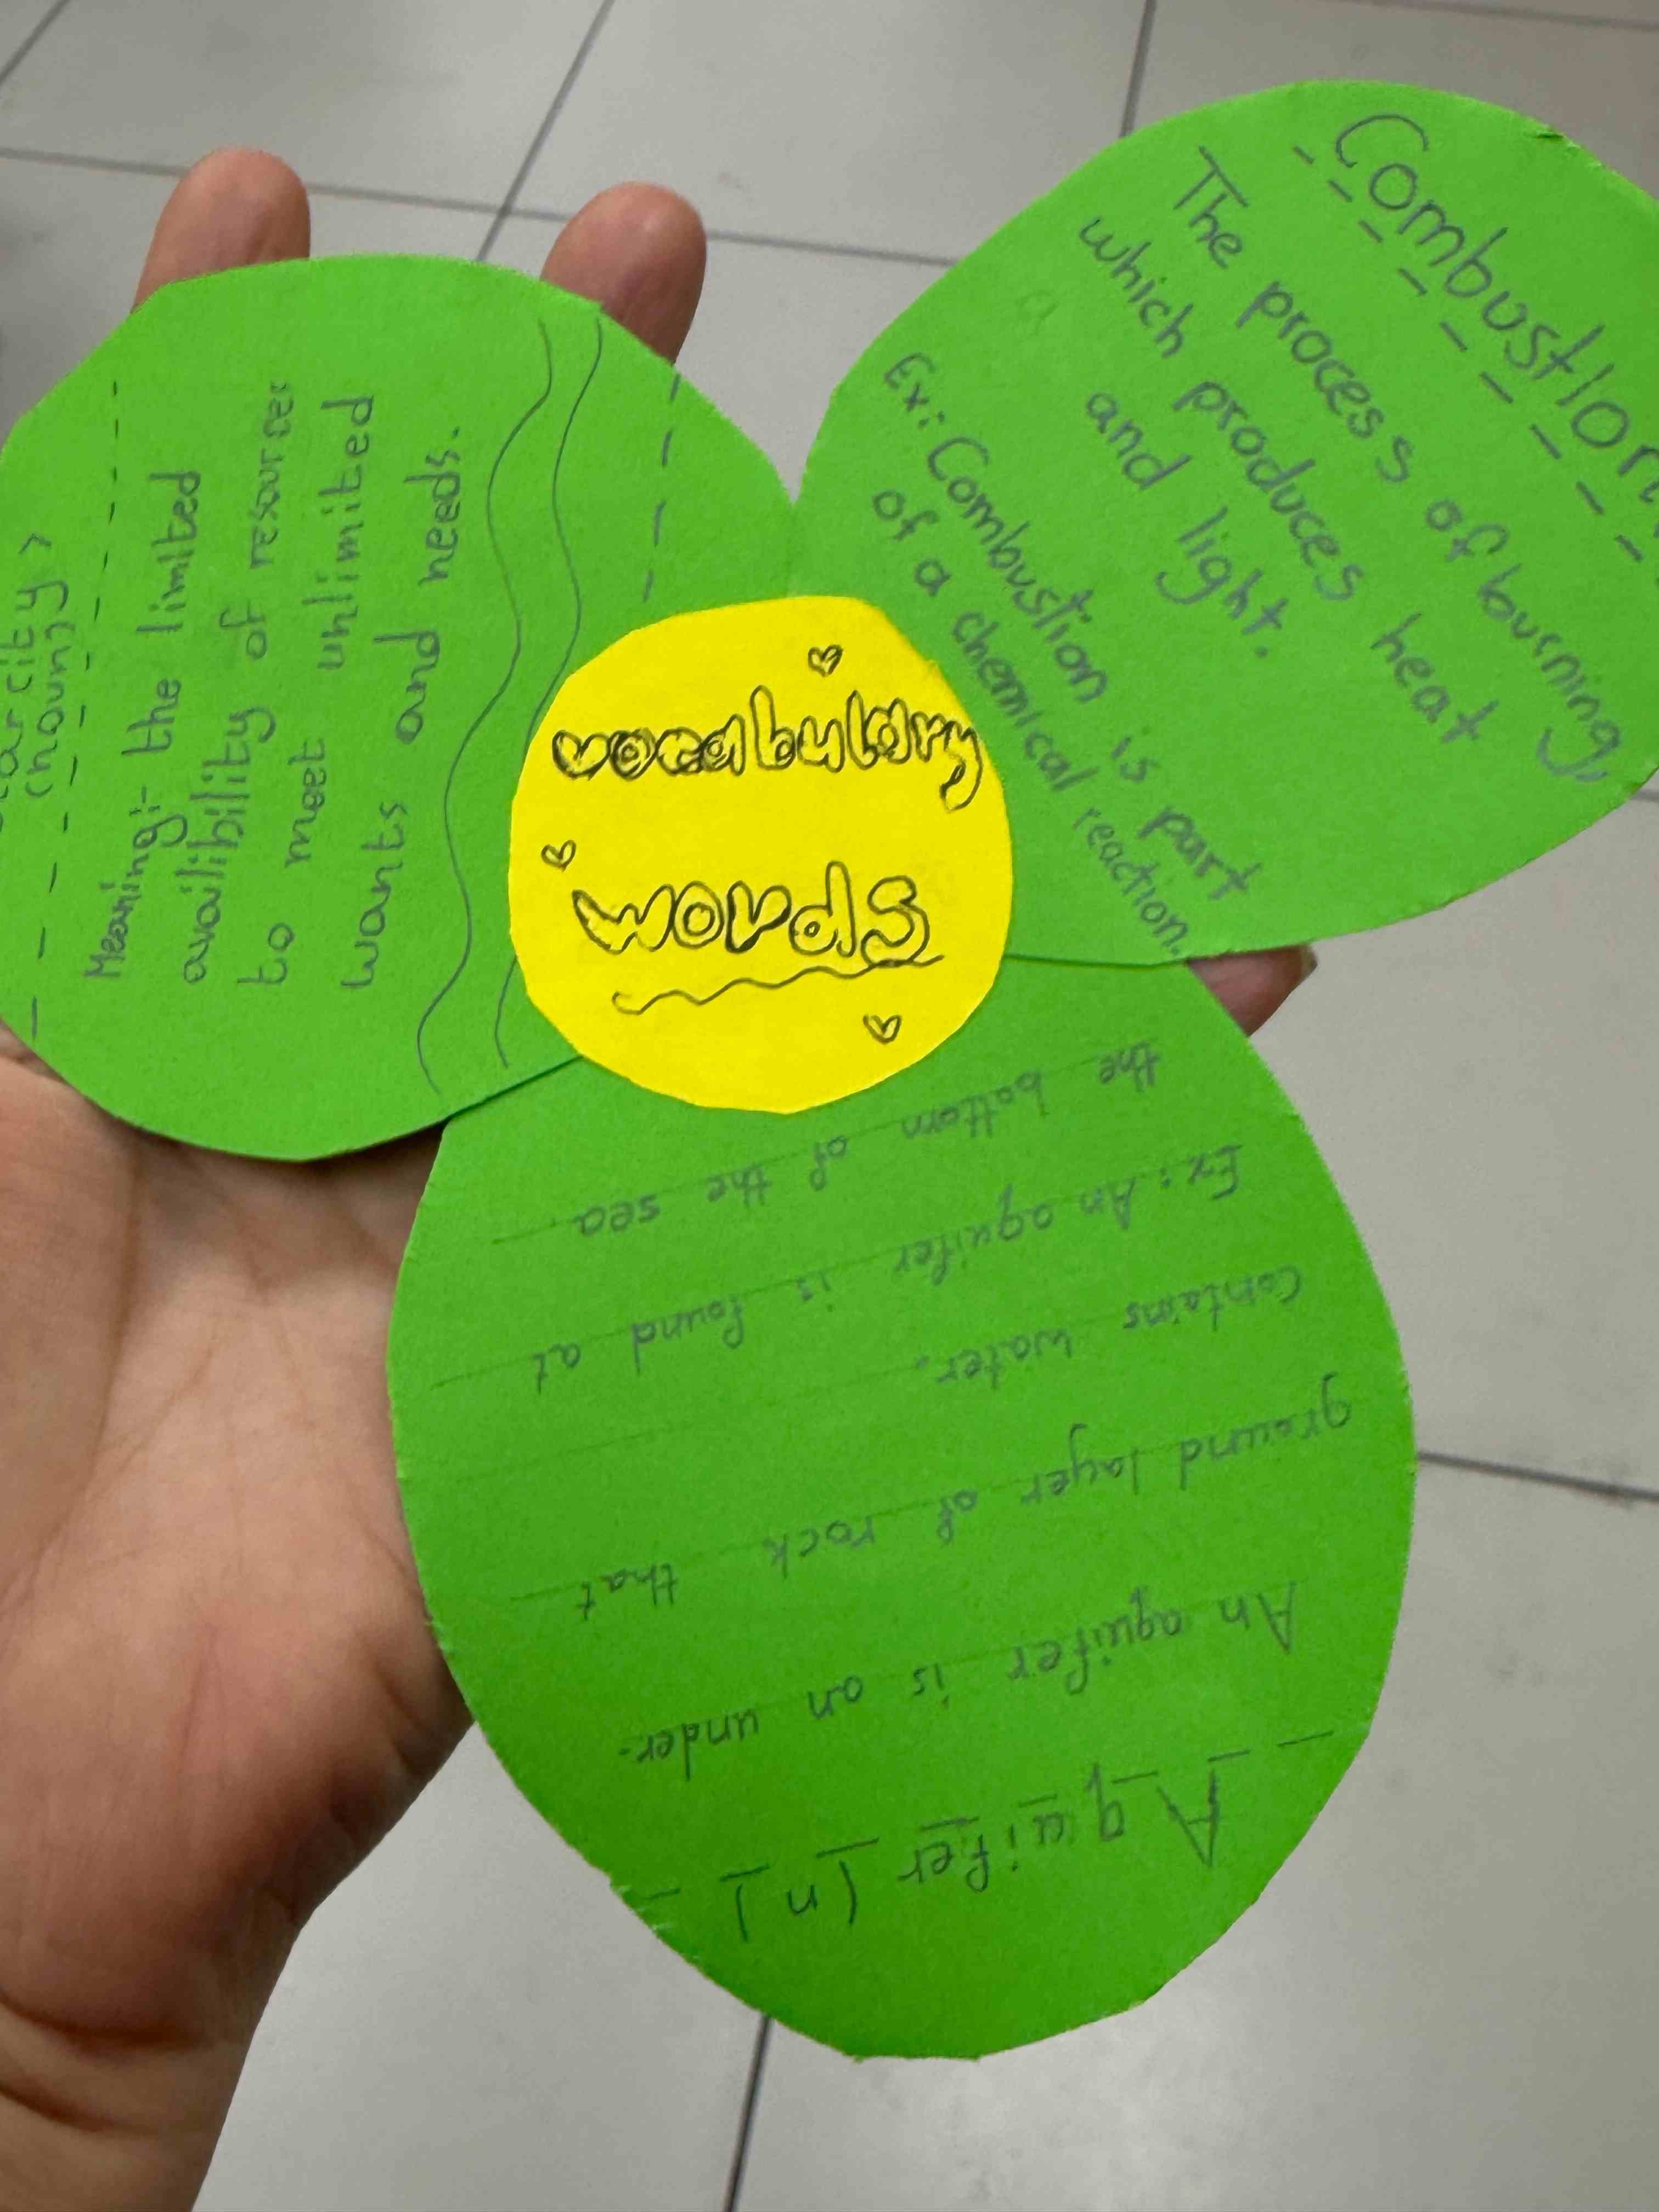 vocabulary
words
(noun)
Meaning:- the limited
availibility of resources
to meet unlimited
wants and needs.
Combustion
The process of burning,
which produces heat
and light.
Ex: Combustion is part
of a chemical reaction.
Aquifer (n)
An aquifer is an under-
ground layer of rock that
contains water.
Ex: An aquifer is found at
the bottom of the sea.